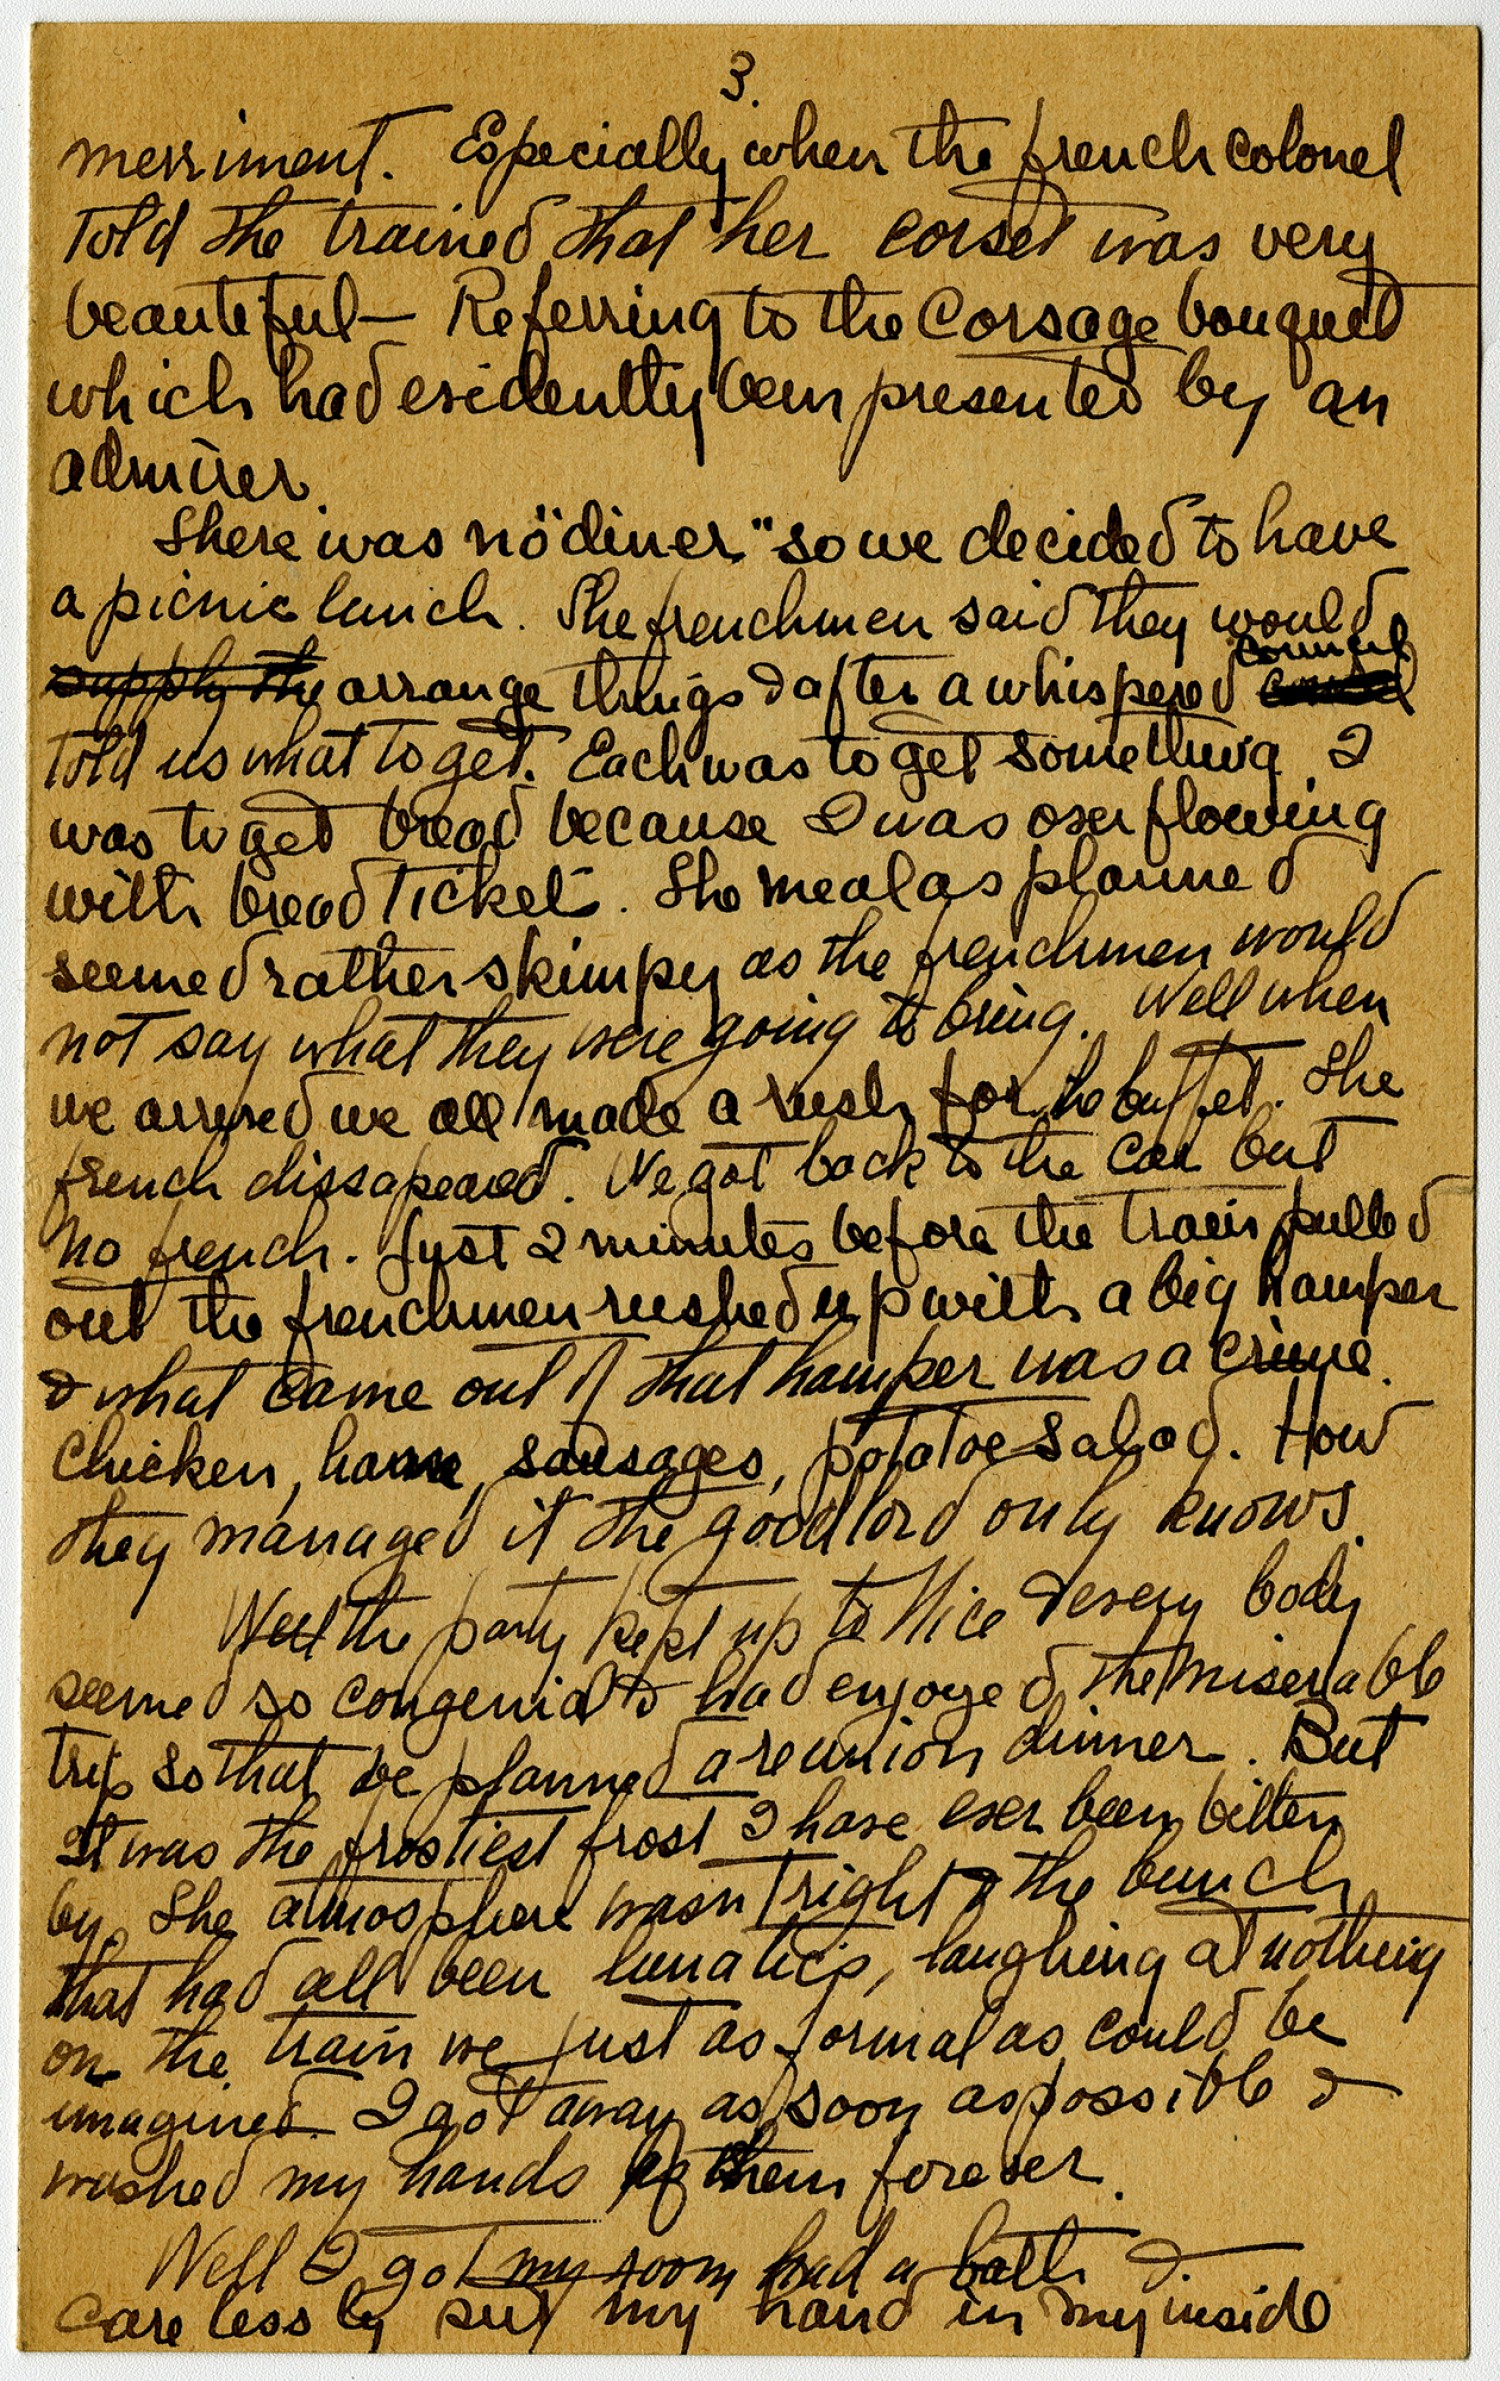 3.
merriment. Especially when the french colonel
told the trained that her corset was very
beautiful — Referring to the Corsage bouquet
which had evidently been presented by an
admirer
There was no "diner" so we decided to have
a picnic lunch. The frenchmen said they would
supply the arrange things & after a whispered council
told us what to get. Each was to get something I
was to get bread because I was overflowing
with bread tickets. The meal as planned
seemed rather skimpy as the frenchmen would
not say what they were going to bring. Well when
we arrived we all made a rush for the buffet. The
french dissapeared. We got back to the car but
no french. Just 2 minutes before the train pulled
out the frenchmen rushed up with a big hamper
& what came out of that hamper was a crime.
Chicken, ham, sausages, potatoe salad. How
they managed it the good lord only knows.
Well the party kept up to Nice & every body
seemed so congenial & had enjoyed the miserable
trip so that we planned a reunion dinner. But
It was the frostiest frost I have ever been bitten
by. The atmosphere wasn't right & the bunch
that had all been lunatics, laughing at nothing
on the train we just as formal as could be
imagined. I got away as soon as possible &
washed my hands of them forever.
Well I got my room had a bath &
carelessly put my hand in my inside